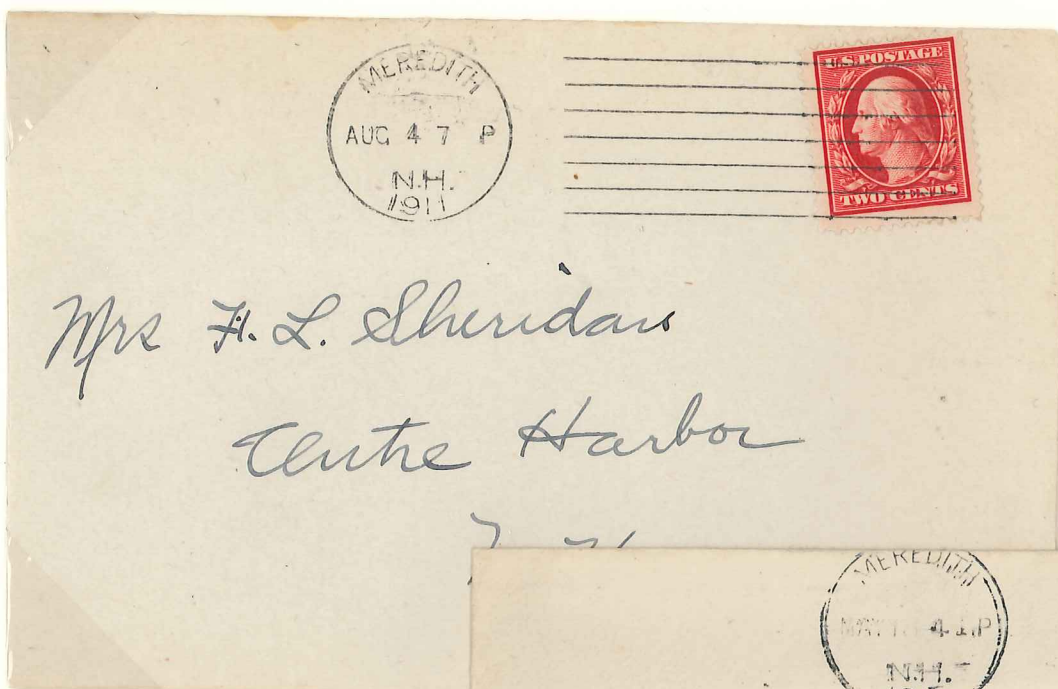 MEREDITH
AUG 4 7 P
N.H.
1911
U.S. POSTAGE
TWO CENTS
Mrs F. L. Sheridan
Centre Harbor
MEREDITH
MAY 4 1 P
N.H.